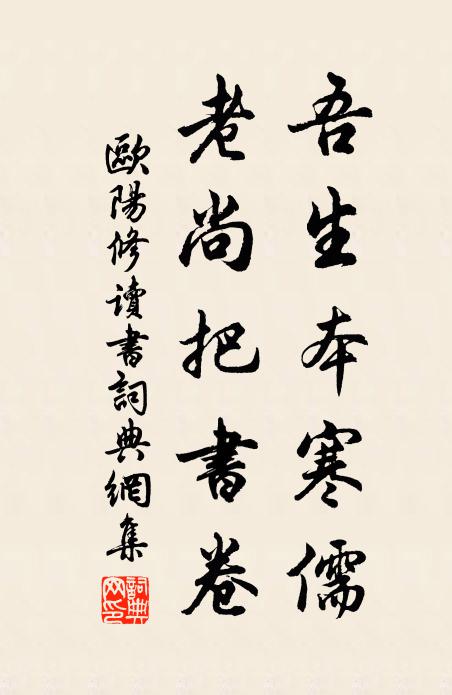 吾生本寒儒
老尚把書卷
歐陽修讀書詞典網集
詞典網印